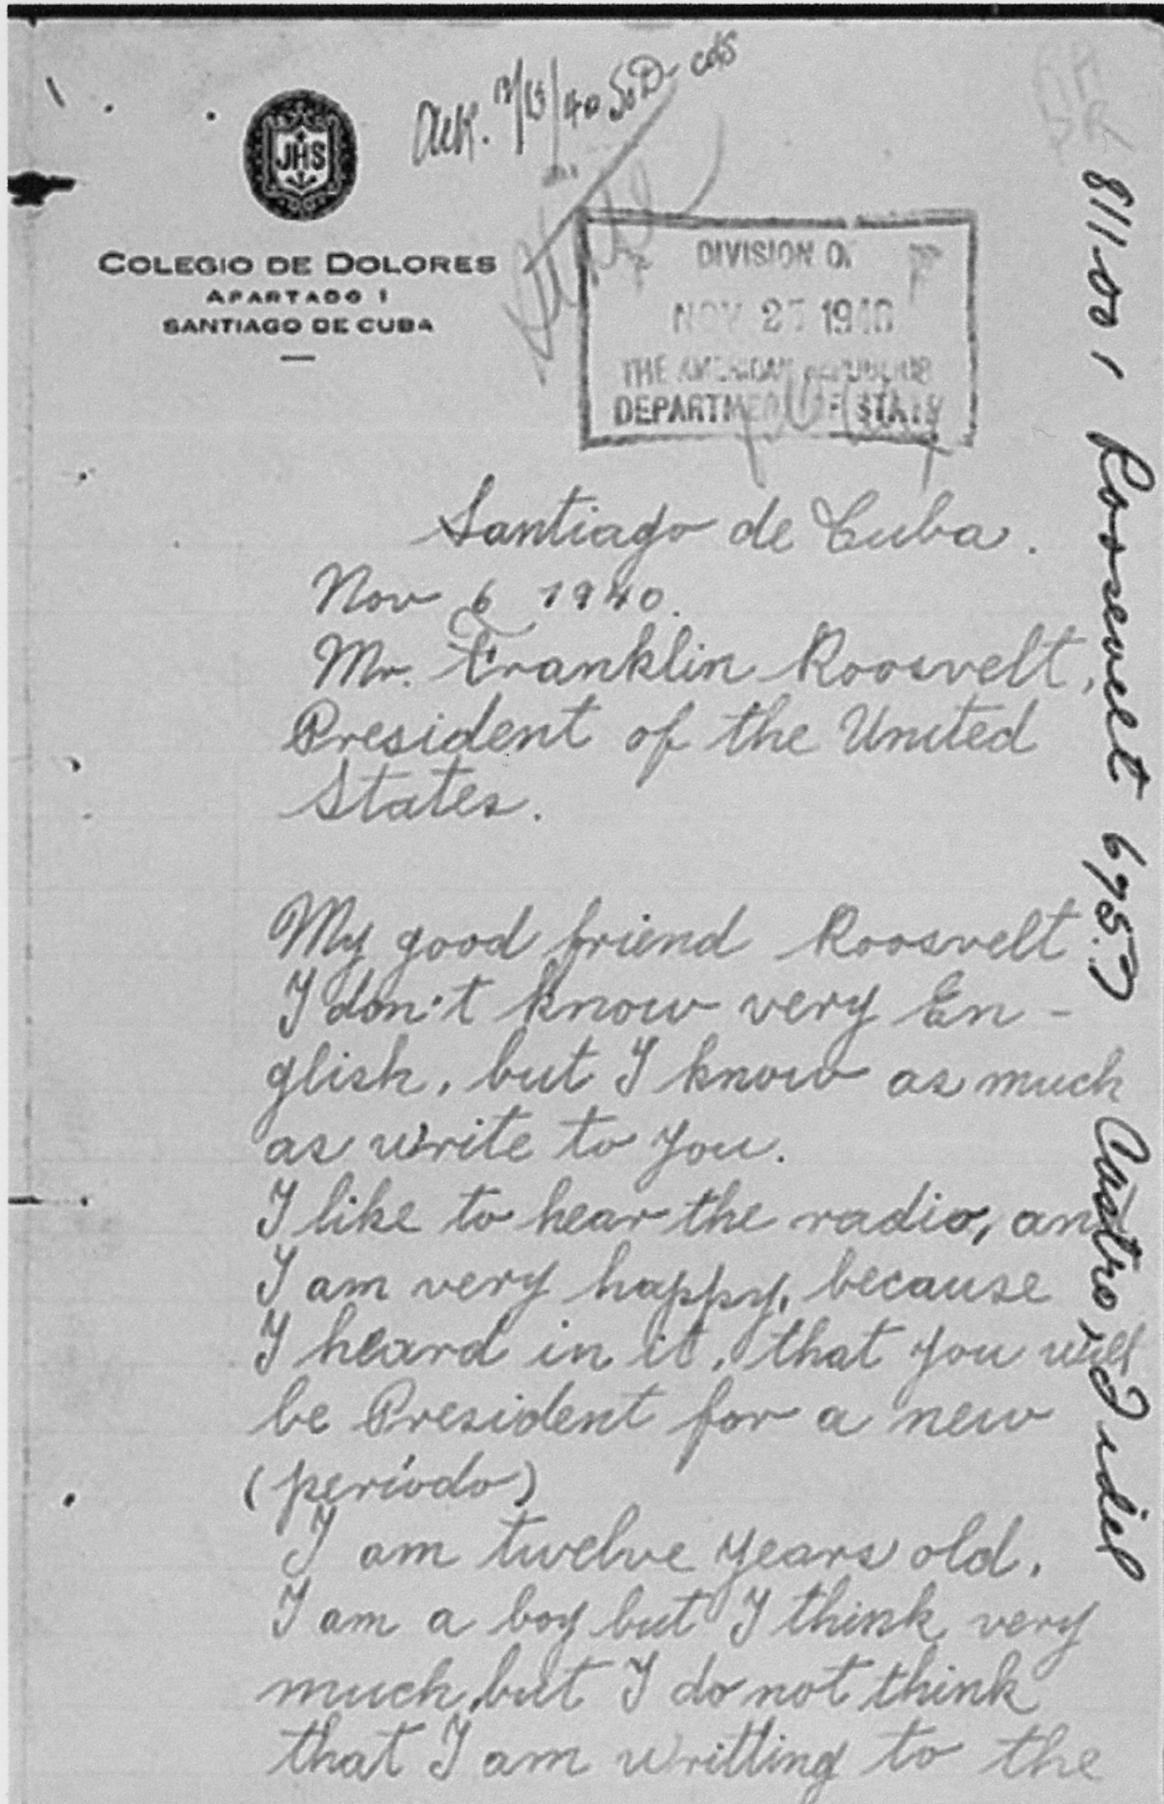 JHS
COLEGIO DE DOLORES
APARTADO 1
SANTIAGO DE CUBA
Ack.
DIVISION OF
NOV 1940
THE AMERICAN REPUBLICS
DEPARTMENT OF STATE
Santiago de Cuba.
Nov 6 1940.
Mr. Franklin Roosvelt,
President of the United
States.
My good friend Roosvelt
I don't know very En-
glish, but I know as much
as write to you.
I like to hear the radio, and
I am very happy, because
I heard in it, that you will
be President for a new
(período)
I am twelve years old.
I am a boy but I think very
much, but I do not think
that I am writting to the
811.001 Roosevelt Castro, Fidel